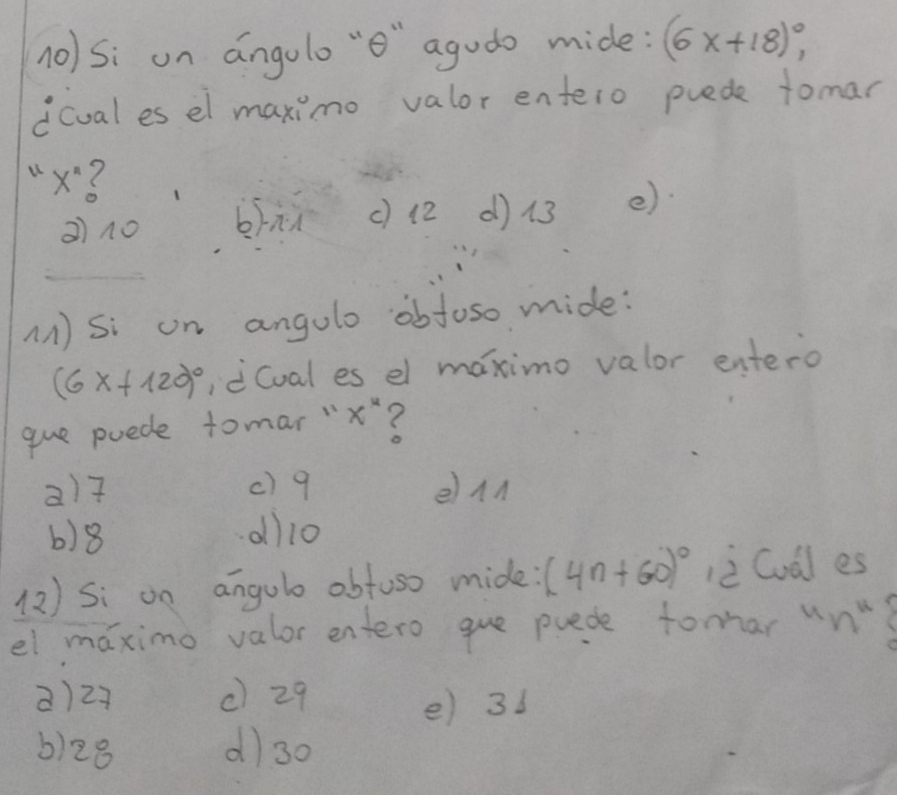 10) Si un ángulo "θ" agudo mide: (6x+18)°,
¿Cual es el maximo valor entero puede tomar
"x"?
a) 10 b) 11 c) 12 d) 13 e)
11) Si un angulo obtuso mide:
(6x+120)°, ¿Cual es el máximo valor entero
que puede tomar "x"?
a) 7 c) 9 e) 11
b) 8 d) 10
12) Si un ángulo obtuso mide: (4n+60)°, ¿Cuál es
el máximo valor entero que puede tomar "n"?
a) 27 c) 29 e) 31
b) 28 d) 30